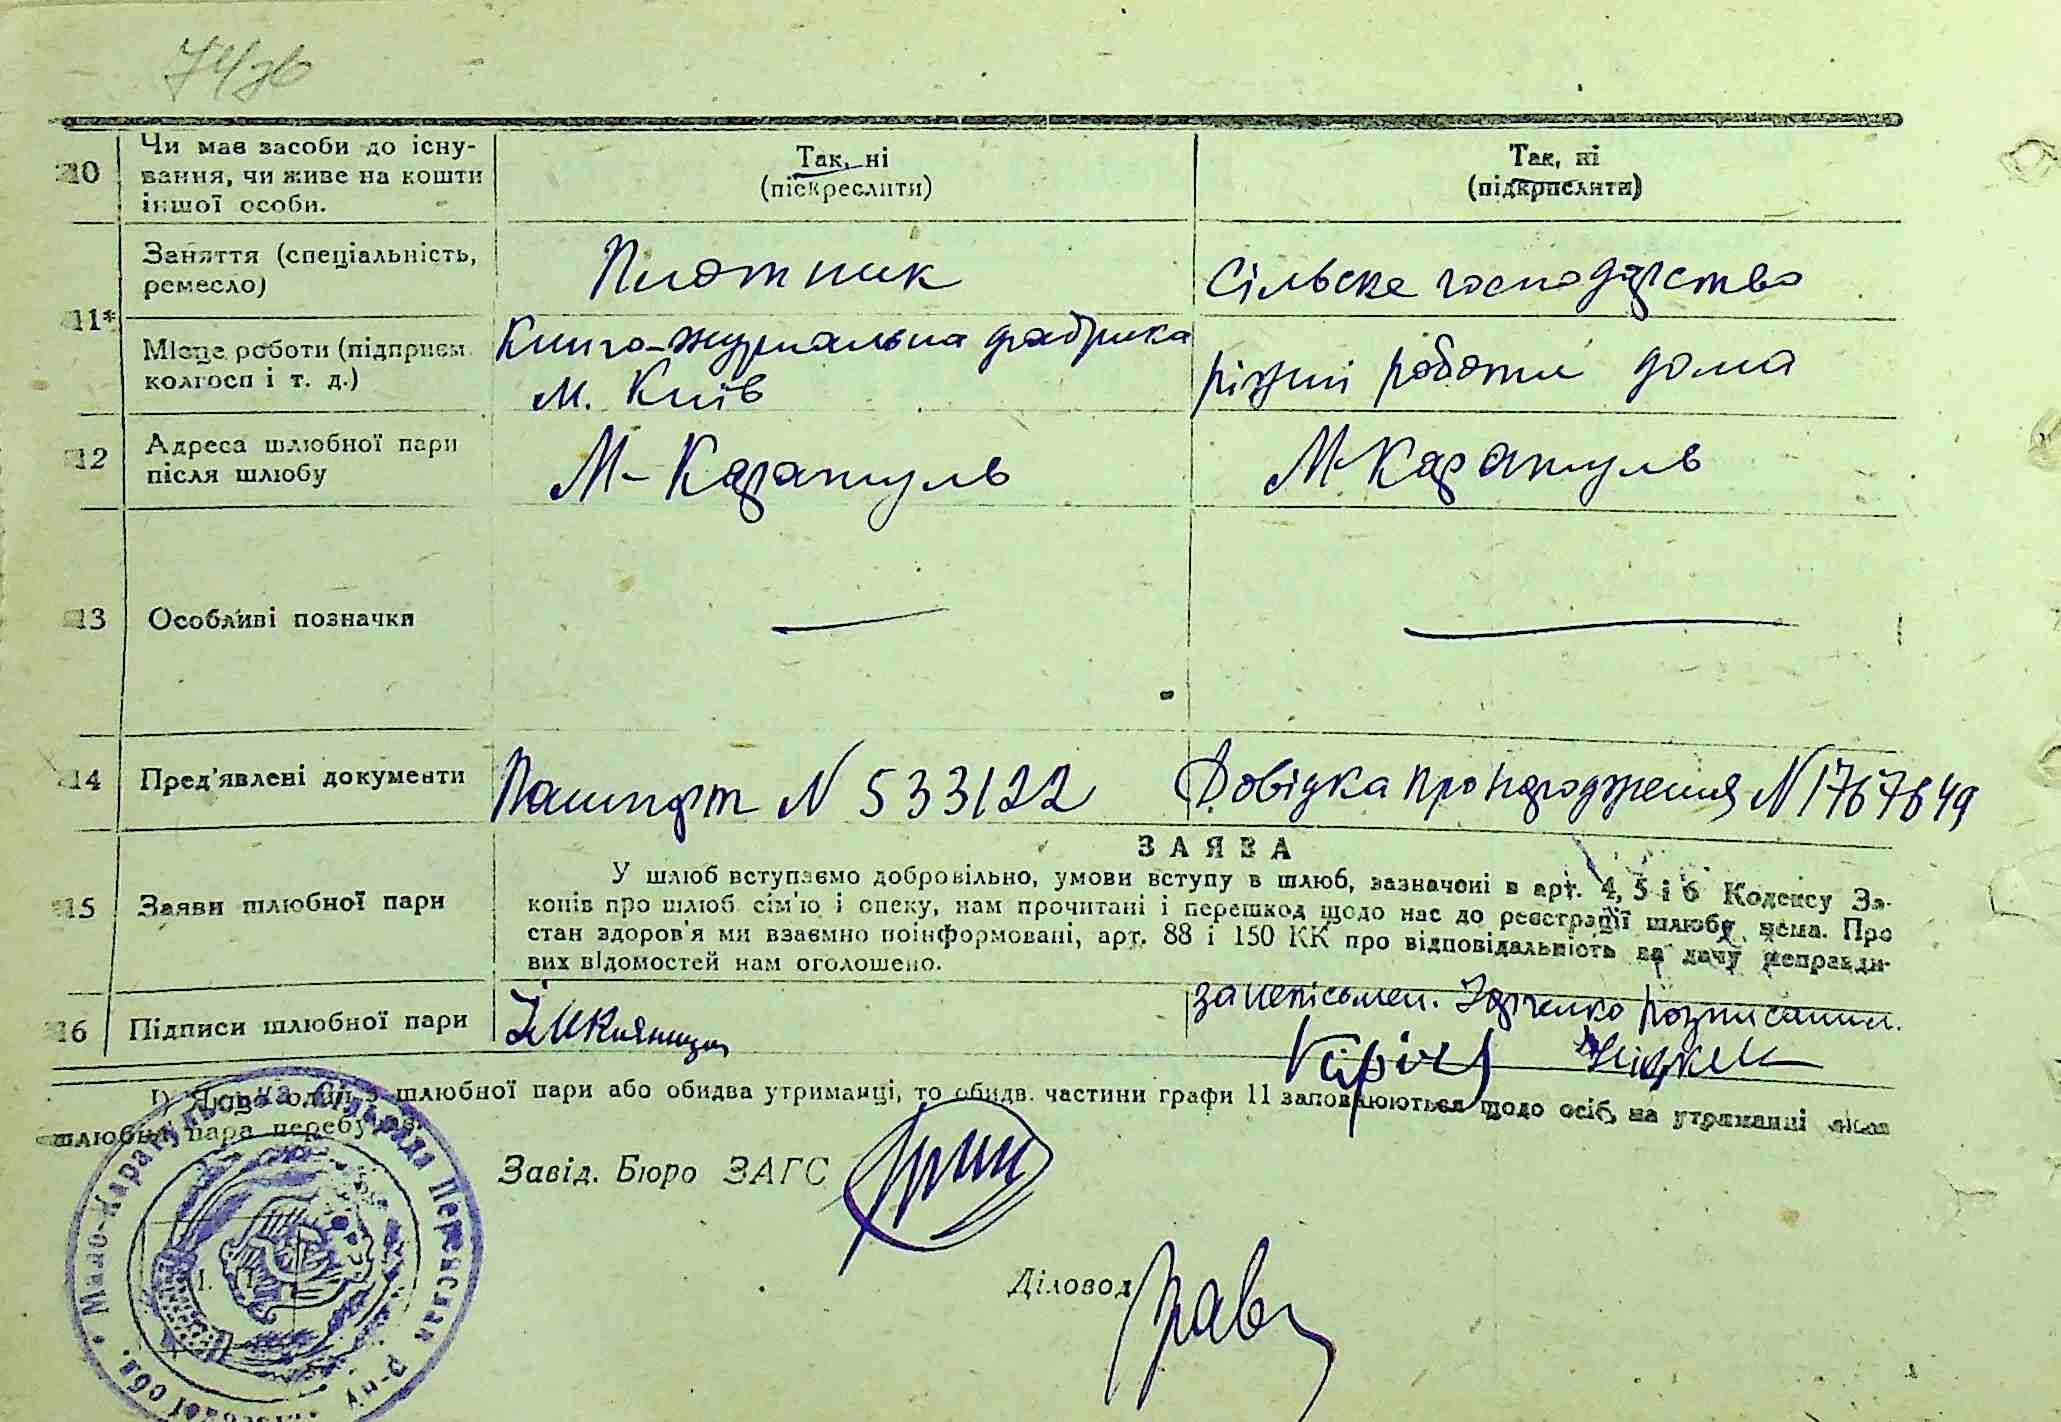 74зв
10
Чи має засоби до існу-
вання, чи живе на кошти
іншої особи.
Так, ні
(піскреслити)
Так, ні
(підкрпслити)
11*
Заняття (спеціальність,
ремесло)
Плотник
Сільске господарство
Місце роботи (підприєм.
колгосп і т. д.)
Книго-журнальна фабрика
м. Київ
різні роботи дома
12
Адреса шлюбної пари
після шлюбу
М-Каратуль
М-Каратуль
13
Особливі позначки
14
Пред'явлені документи
Пашпорт N 533122
Довідка про народження N 1767849
15
Заяви шлюбної пари
ЗАЯВА
У шлюб вступаємо добровільно, умови вступу в шлюб, зазначені в арт. 4, 5 і 6 Кодексу За-
конів про шлюб сім'ю і опеку, нам прочитані і перешкод щодо нас до реєстрації шлюбу нема. Про
стан здоров'я ми взаємно поінформовані, арт. 88 і 150 КК про відповідальність за дачу неправди-
вих відомостей нам оголошено.
16
Підписи шлюбної пари
за неписьмен.
1) Якщо один з шлюбної пари або обидва утриманці, то обидв. частини графи 11 заповнюються щодо осіб, на утриманні яких
шлюбна пара перебуває.
Завід. Бюро ЗАГС
Діловод
Мало-Каратульська Сільрада Переяслав р-ну обл.